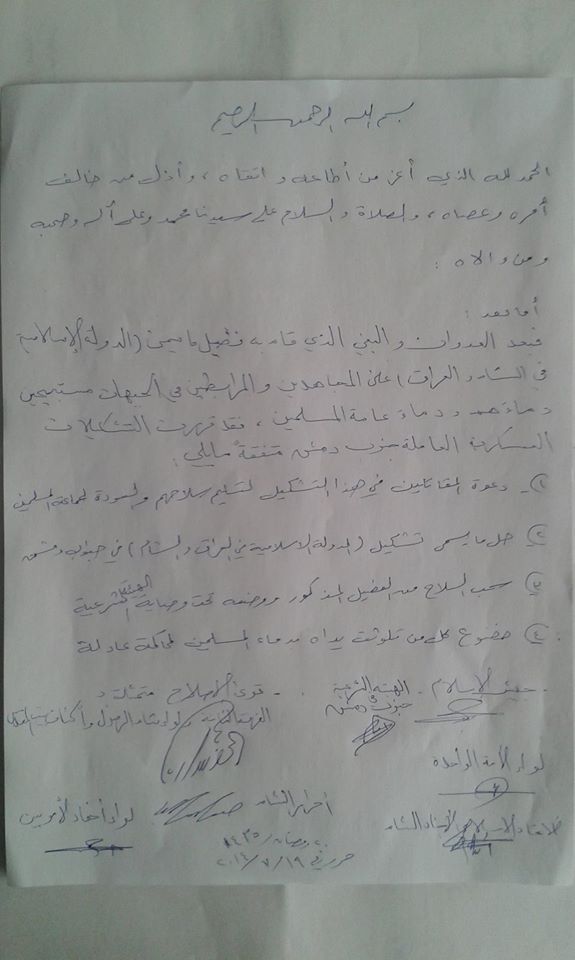 بسم الله الرحمن الرحيم
الحمد لله الذي أعز من أطاعه واتقاه ، وأذل من خالف
أمره وعصاه ، والصلاة والسلام على سيدنا محمد وعلى آله وصحبه
ومن والاه :
أما بعد :
فبعد العدوان والبغي الذي قام به فصيل ما يسمى (الدولة الإسلامية
في الشام والعراق) على المجاهدين والمرابطين في الجبهات مستبيحين
دماءهم ودماء عامة المسلمين ، فقد قررت التشكيلات
العسكرية العاملة جنوب دمشق متفقة مايلي :
١- دعوة المقاتلين في هذا التشكيل لتسليم سلاحهم والعودة لجماعة المسلمين
٢ حل ما يسمى تشكيل (الدولة الاسلامية في العراق والشام) في جنوب دمشق
٣ سحب السلاح من الفصيل المذكور ووضعه تحت وصاية الهيئة الشرعية
٤ خضوع كل من تلوثت يداه بدماء المسلمين لمحاكمة عادلة
- جيش الإسلام - الهيئة الشرعية جنوب دمشق - قوى الإصلاح متمثلة د
لواء شام الرسول وأكناف بيت المقدس
لواء الأمة الواحدة
أحرار الشام
لواء أحفاد الأمويين
الاتحاد الإسلامي لأجناد الشام
٢٠ رمضان / ١٤٣٥
حرر في ١٩ / ٧ / ٢٠١٤